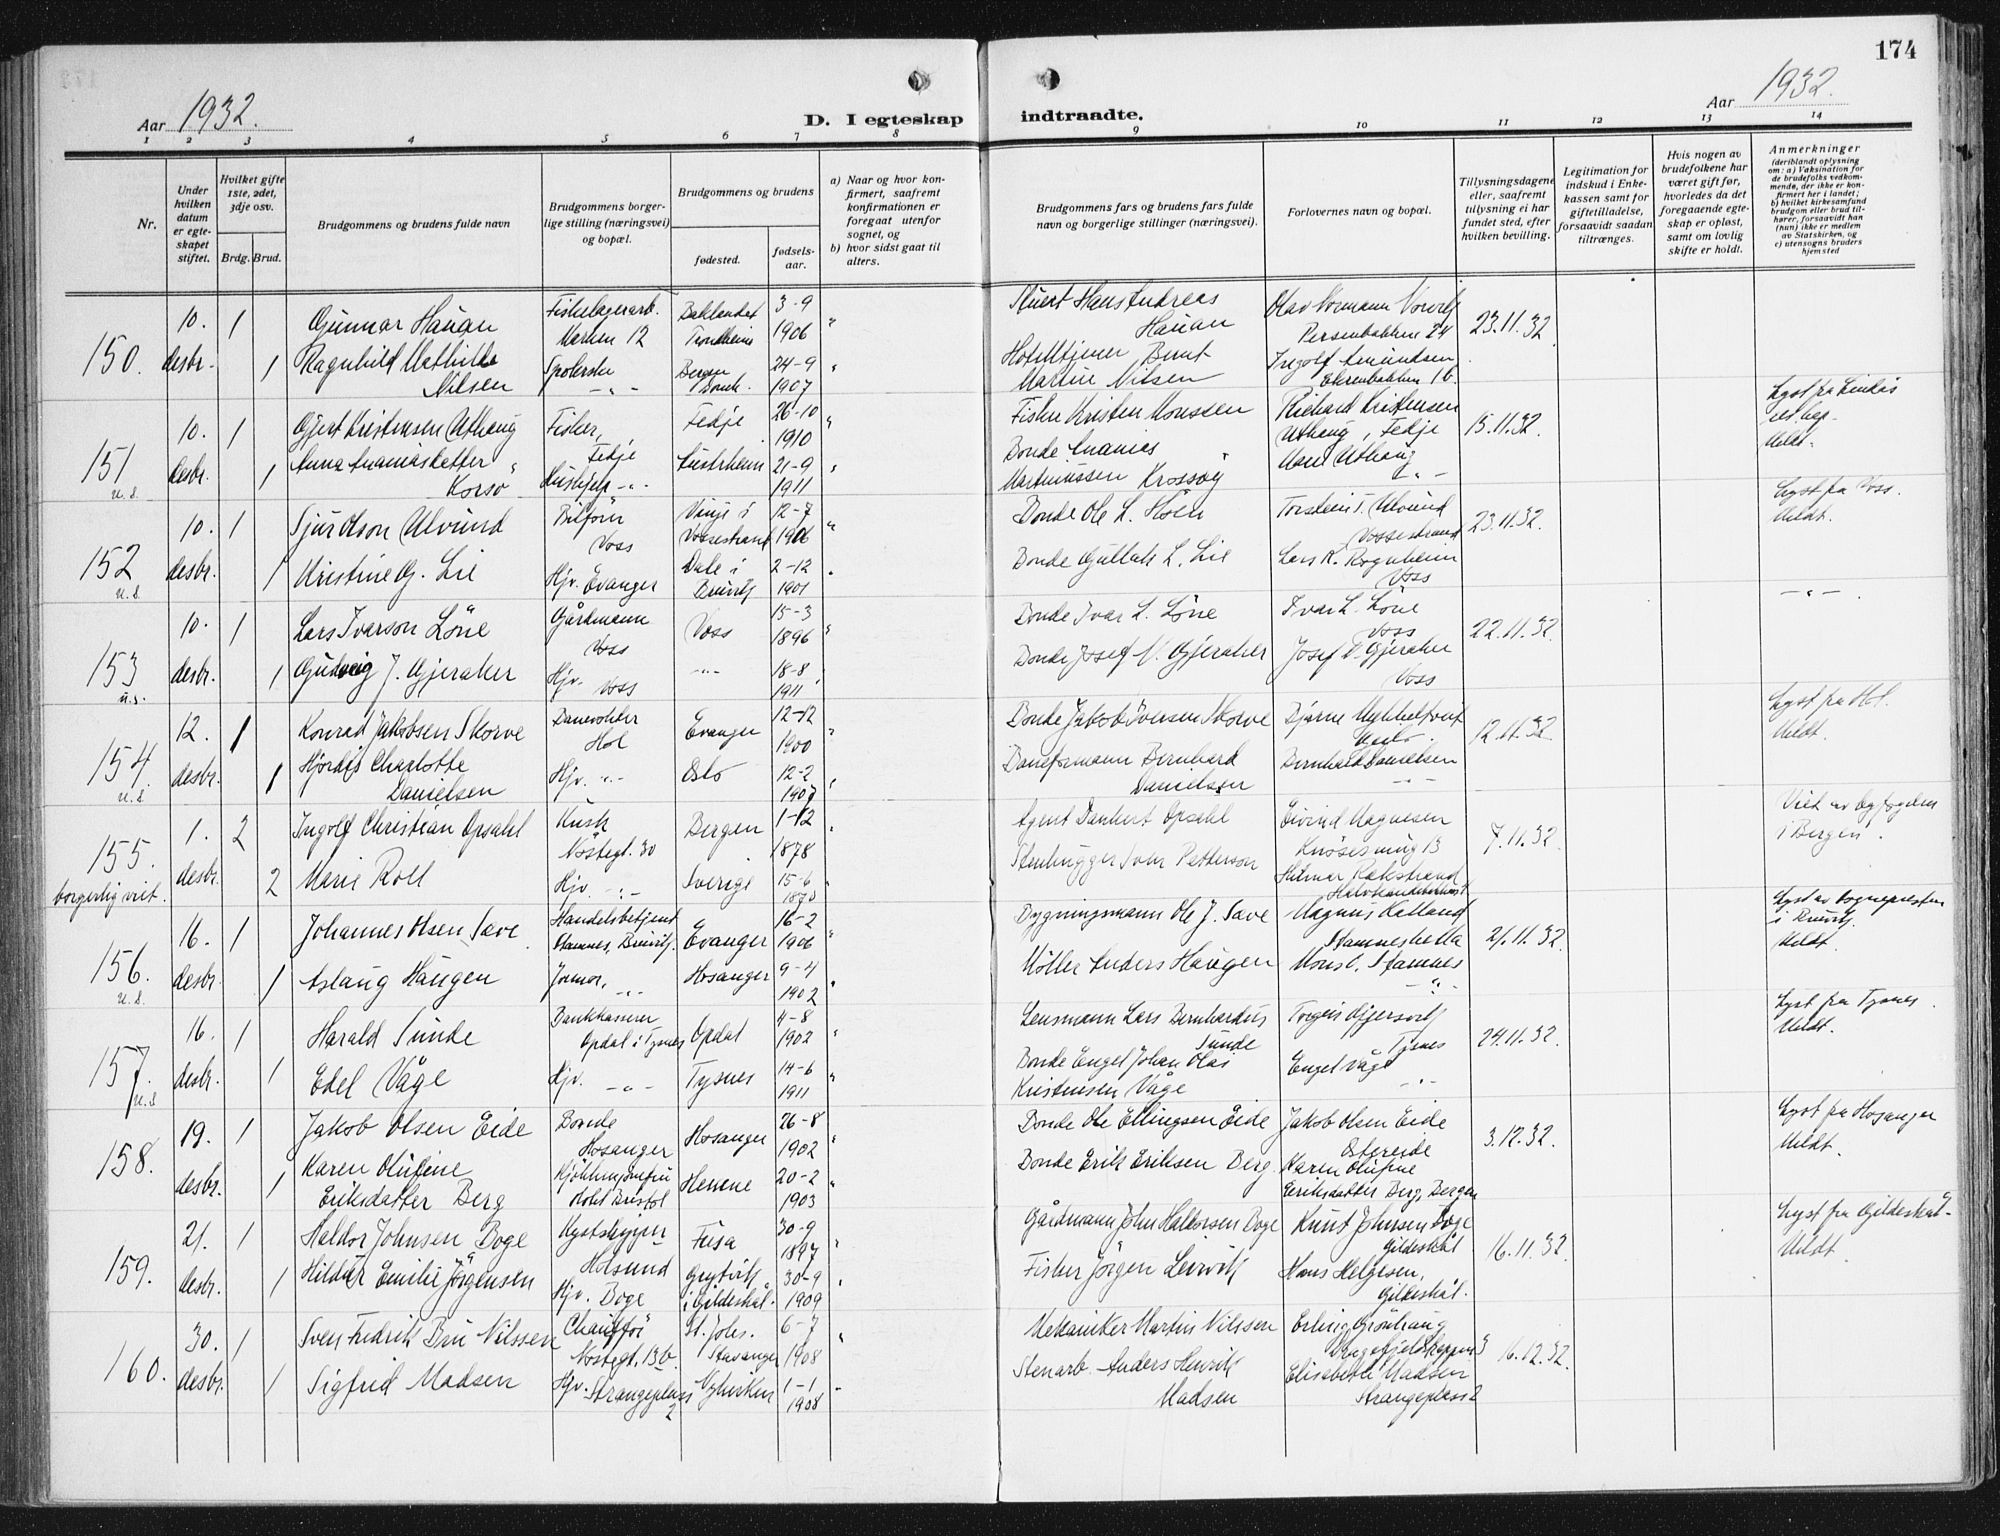 174
Aar 1932. D. I egteskap indtraadte. Aar 1932.
1 2 3 4 5 6 7 8 9 10 11 12 13 14
Nr.
Under hvilken datum er egteskapet stiftet.
Hvilket gifte 1ste, 2det, 3dje osv.
Brdg. Brud.
Brudgommens og brudens fulde navn
Brudgommens borgerlige stilling (næringsvei) og bopæl.
Brudgommens og brudens
fødested.
fødselsaar.
a) Naar og hvor konfirmert, saafremt konfirmationen er foregaat utenfor sognet, og
b) hvor sidst gaat til alters.
Brudgommens fars og brudens fars fulde navn og borgerlige stillinger (næringsvei).
Forlovernes navn og bopæl.
Tillysningsdagene eller, saafremt tillysning ei har fundet sted, efter hvilken bevilling.
Legitimation for indskud i Enkekassen samt for giftetilladelse, forsaavidt saadan tiltrænges.
Hvis nogen av brudefolkene har været gift før, hvorledes da det foregaaende egteskap er opløst, samt om lovlig skifte er holdt.
Anmerkninger (deriblandt oplysning om: a) Vaksination for de brudefolks vedkommende, der ikke er konfirmert her i landet; b) hvilket kirkesamfund brudgom eller brud tilhører, forsaavidt han (hun) ikke er medlem av Statskirken, og c) utensogns bruders hjemsted
150. 10. desbr. 1 Gunnar Haugan Fiskelagerarb. Marken 12 Baklandet Trondheim 3-9 1906 Hans Andreas Hauan Olav Persenbakken 24 23.11.32
1 Ragnhild Mathilde Nilsen Bergen Domk. 24-9 1907 Hotelltjener Bernt Martin Nilsen Ingolf Amundsen 16.
151 u.s. 10. desbr. 1 Gjert Kristensen Uthaug Fisker, Fedje Fedje 26-10 1910 Fisker Kristen Monssen Richard Kristensen Uthaug, Fedje 15.11.32. Lyst fra Lindås Uldt.
1 Anna Ananiasdatter Korsø Hushjelp -"- Austrheim 21-9 1911 Bonde Ananias Martinussen Krossøy Uthaug -"-
152 u.s. 10. desbr. 1 Sjur Olson Ulvund Bilfører Voss Vinje i Vossestrand 12-7 1906 Bonde Ole L. Torstein T. Ulvund Vossestrand 23.11.32. Lyst fra Voss. Uldt.
1 Kristine G. Lie Hjv. Evanger Dale i Bruvik 2-12 1901 Bonde Gullak L. Lie Lars K. Rognheim Voss
153 u.s. 10. desbr. 1 Lars Ivarson Løne Gårdmann Voss Voss 15-3 1896 Bonde Ivar L. Løne Ivar L. Løne Voss 22.11.32. -"-
1 Gudveig J. Gjeraker Hjv. Voss -"- 18-8 1911 Bonde Josef V. Gjeraker Josef V. Gjeraker Voss
154. u.s. 12. desbr. 1 Konrad Jakobsen Skorve Banevokter Hol Evanger 12-12 1900 Bonde Jakob Iversen Skorve Bjarne 12.11.32. Lyst fra Hol. Uldt.
1 Hjördis Charlotte Danielsen Hjv. -"- Oslo 12-2 1907 Baneformann Bernhard Danielsen Bernhard Danielsen -"-
155. borgerlig viet. 1. desbr. 2 Ingolf Christian Opsahl Kusk Nöstegt. 30 Bergen 1-12 1878 Agent Opsahl Eivind Magnesen 13 7.11.32. Viet av byfogden i Bergen.
2 Marie Roll Hjv. -"- Sverige 15-6 Stenhugger Sven Petterson Hilmar Rekstrand
156. u.s. 16. desbr. 1 Johannes Olsen Save Handelsbetjent Stamnes, Bruvik. Evanger 16-2 1906 Bygningsmann Ole J. Save Magnus Kalland Stamneshella 21.11.32. Lyst av sognepresten i Bruvik. Uldt.
1 Aslaug Haugen Jormor, -"- Hosanger 9-4 1902 Möller Anders Haugen Mons O. Stamnes -"-
157. u.s 16. desbr. 1 Harald Tunde Bankkasserer Opdal i Tysnes Opdal 4-8 1902 Lensmann Lars Bernhardus Tunde Torgeis Gjersvik Tysnes 24.11.32. Lyst fra Tysnes. Uldt.
1 Edel Våge Hjv. -"- Tysnes 14-6 1911 Bonde Engel Johan Olai Kristensen Våge Engel Våge -"-
158. 19. desbr. 1 Jakob Olsen Eide Bonde Hosanger Hosanger 26-8 1902 Bonde Ole Ellingsen Eide Jakob Olsen Eide Ostereide 3.12.32. Lyst fra Hosanger Uldt.
1 Karen Olufine Eriksdatter Berg Kjökkenjomfru Hotel Bristol Hemne 20-2 1903 Bonde Erik Eriksen Berg Karen Olufine Eriksdatter Berg, Bergen
159. 21. desbr. 1 Haldor Johnsen Boge Kystskipper Holsund Fusa 30-9 1897 Gårdmann John Haldorsen Boge Knut Johnsen Boge Gildeskål 16.11.32. Lyst fra Gildeskål. Uldt.
1 Hildur Emilie Jörgensen Hjv. Boge Grytvik i Gildeskål. 30-9 1909 Fisker Jörgen Leirvik Hans Helgesen, Gildeskål.
160. 30. desbr. 1 Sven Fredrik Bru Nilssen Chaufför Nöstegt. 13b. St. Johs. Stavanger 6-7 1908 Mekaniker Martin Nilssen Erling Grönhaug 3 16.12.32.
1 Sigfrid Madsen Hjv. Strangeplass 2 Nykirken 1-1 1908 Stenarb. Anders Henrik Madsen Elisabeth Madsen Strangeplass 2